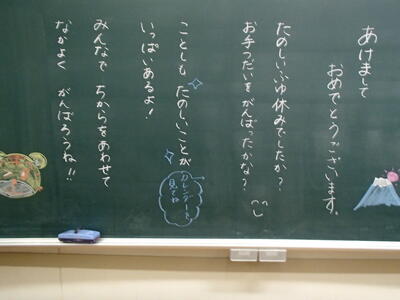 あけまして
おめでとうございます。
たのしいふゆ休みでしたか？
お手つだいをがんばったかな？
ことしも たのしいことが
いっぱいあるよ！
カレンダーも
見てね
みんなで ちからをあわせて
なかよく がんばろうね!!